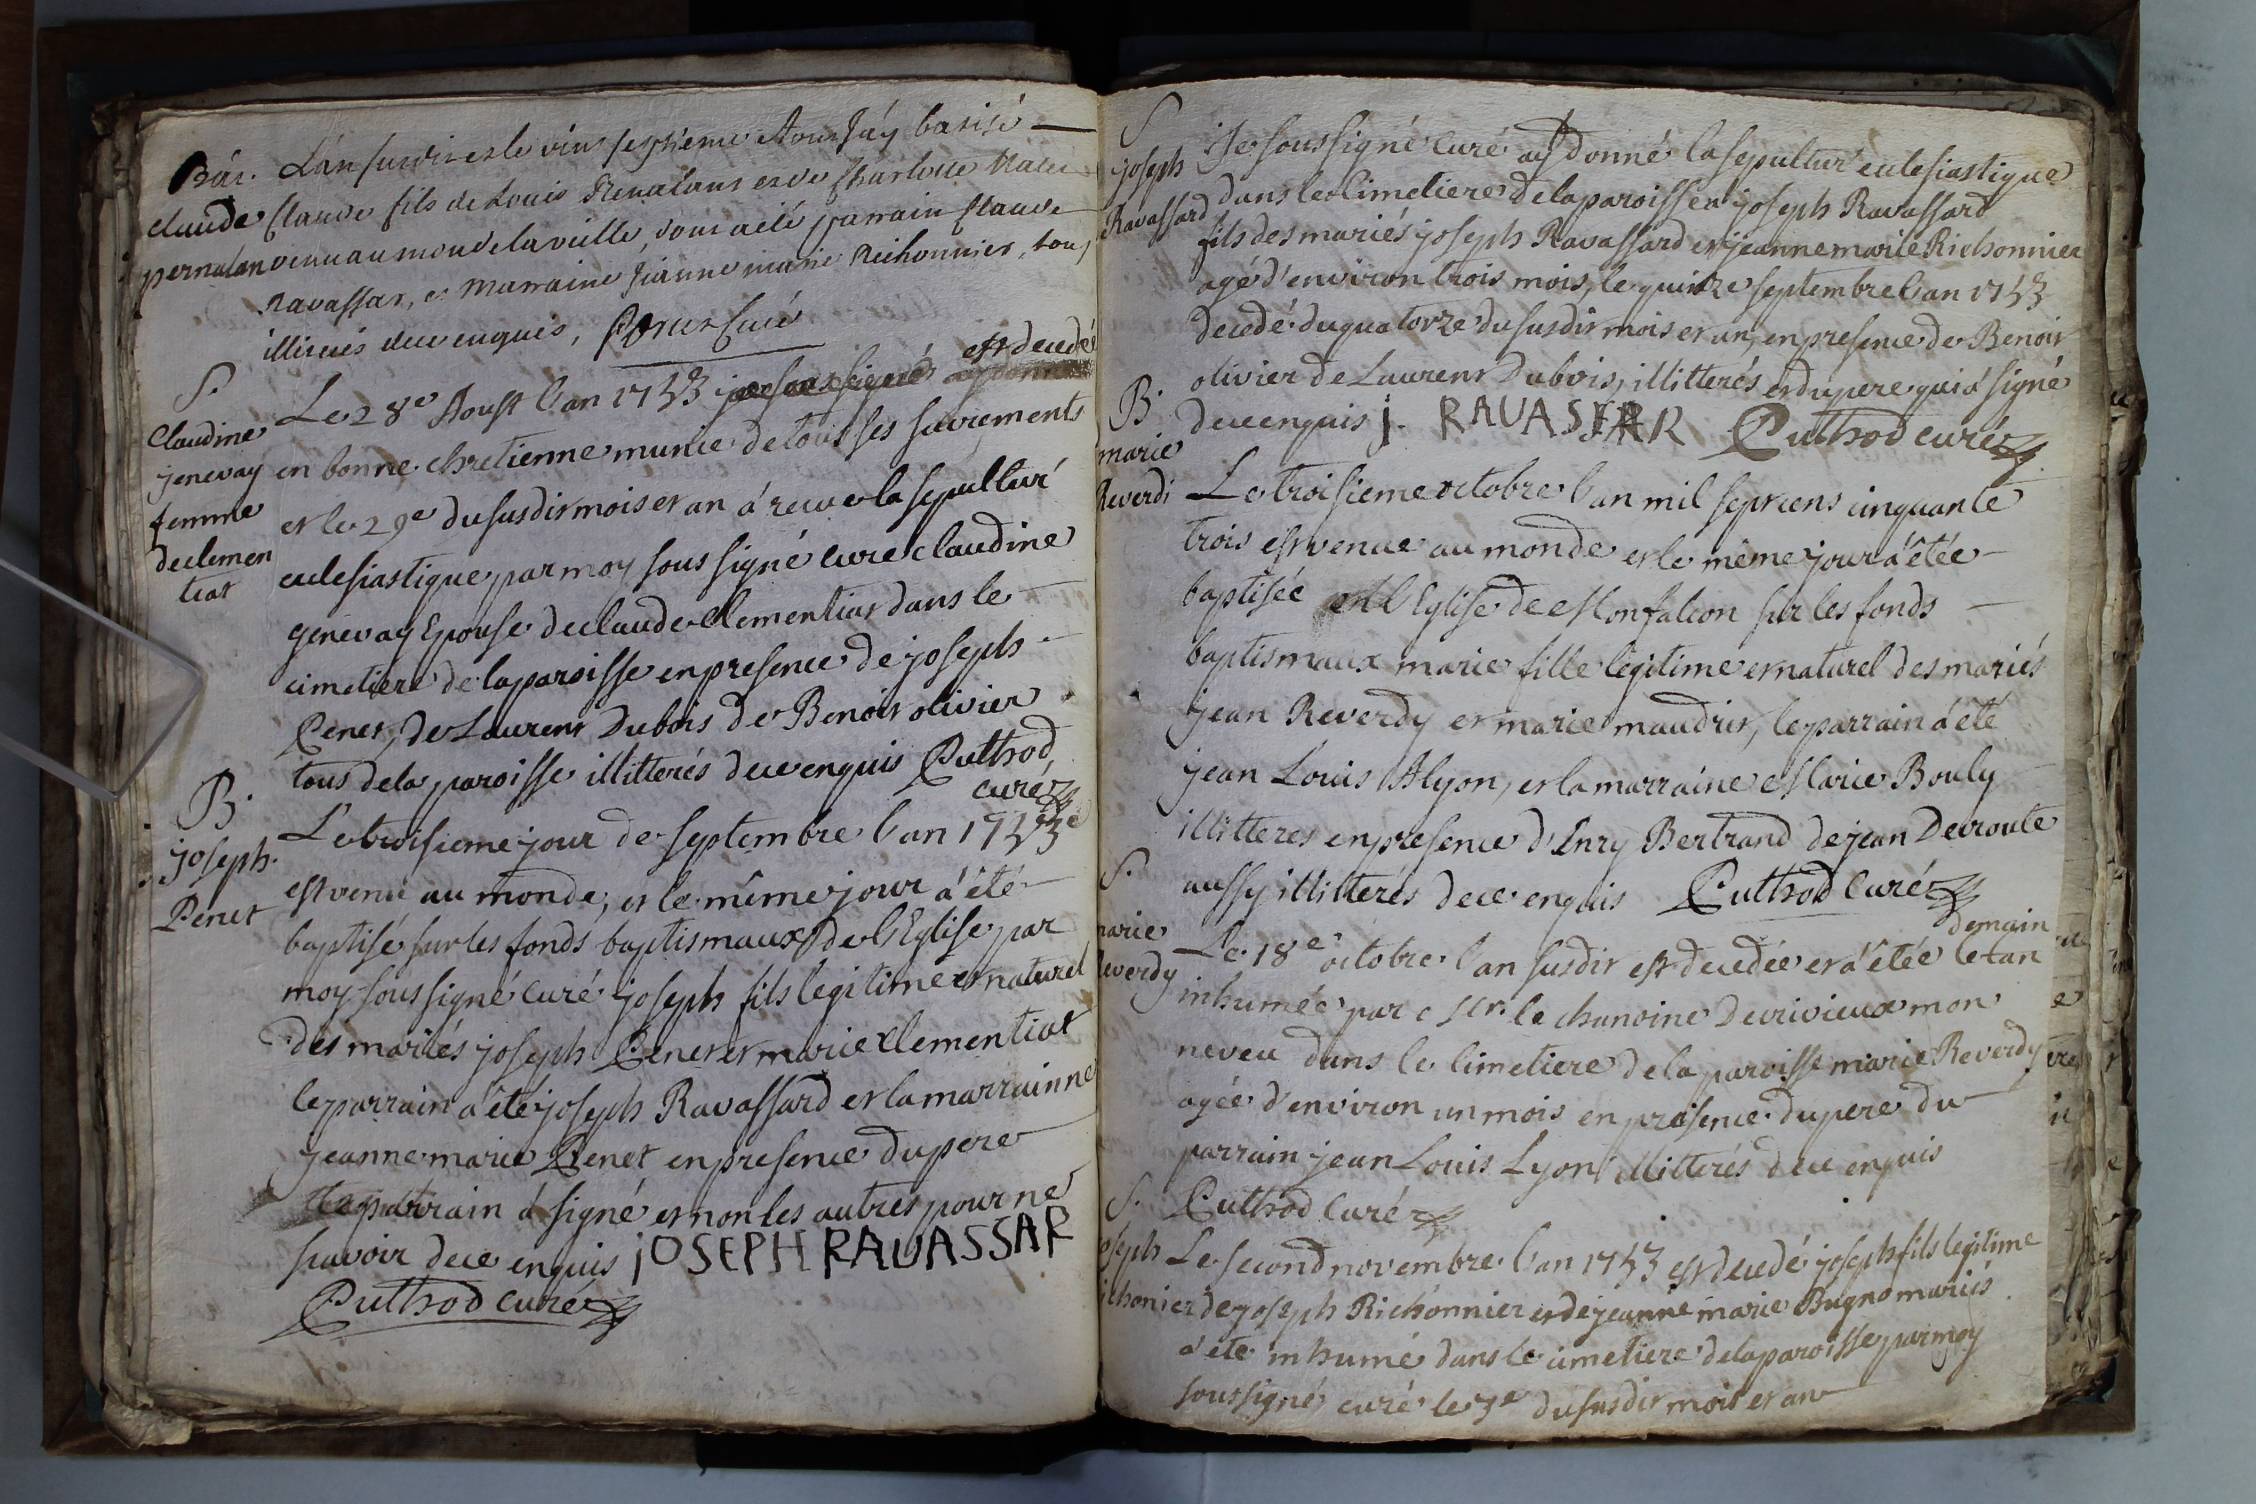 Bâr. L'an susdit et le vint septieme Aoust J'áy batisé
Claude Claude fils de Louis Pernatant et de Charlotte
pernatan venu au monde la vielle, dont a été parrain Claude
Ravassar, et Marraine Jeanne marie Richonnier, tous
illiterés de ce enquis, curé
S.
Claudine
jenevay
femme
declemen
tiat
Le 28e Aoust l'an 1753 je soussigné est decedé
en bonne chretienne munie de tous ses sacrements
et le 29e du susdit mois et an á recue la sepultur
eclesiastique par moy sous signé curé claudine
genevay Epouse de claude Clementiat dans le
cimetiere de la paroisse en presence de joseph
Penet, de Laurent Dubois de Benoit olivier
tous de la paroisse illitterés de ce enquis Puthod
curé
B.
joseph
Penet
Le troisieme jour de septembre l'an 1753e
est venu au monde, et le même jour á été
baptisé sur les fonds baptismaux de l'Eglise par
moy soussigné curé joseph fils legitime et naturel
des mariés joseph Penet et marie Clementiat
le parrain á été joseph Ravassard et la marrainne
jeanne marie Penet en presence du pere
le parrain á signé et non les autres pour ne
savoir de ce enquis jOSEPH RAVASSAR
Puthod curé
S
joseph
Ravassard
Je sous signé curé ay donné la sepultur eclesiastique
dans le Cimetiere de la paroisse a joseph Ravassard
fils des mariés joseph Ravassard et jeanne marie Richonnier
agé d'environ trois mois, le quinze septembre l'an 1753
decedé du quatorze du susdit mois et an, en presence de Benoit
olivier de Laurent Dubois, illitterés et du pere qui á signé
de ce enquis j. RAVASSAR Puthod curé
B.
marie
Reverdi
Le troisieme octobre l'an mil sept cens cinquante
trois est venue au monde et le même jour á étée
baptisée en l'Eglise de Monfalcon sur les fonds
baptismaux marie fille legitime et naturel des mariés
jean Reverdy et marie maudrit, le parrain á été
jean Louis Alyon, et la marraine Marie Bouly
illitteres en presence d'Enry Bertrand de jean Decroute
aussy illitterés de ce enquis Puthod Curé
S.
marie
Reverdy
demain
Le 18e octobre l'an susdit est decedée et á étée le tan
inhumée par Mr. le chanoine Decrivieux mon
neveu dans le Cimetiere de la paroisse marie Reverdy
agée d'environ un mois en presence du pere du
parrain jean Louis Lyon illitterés de ce enquis
Puthod Curé
S.
oseph
ichonier
Le second novembre l'an 1753 est decedé joseph fils legitime
de joseph Richonnier et de jeanne marie Bugno mariés
á été inhumé dans le cimetiere de la paroisse par moy
soussigné curé le 3e du susdit mois et an